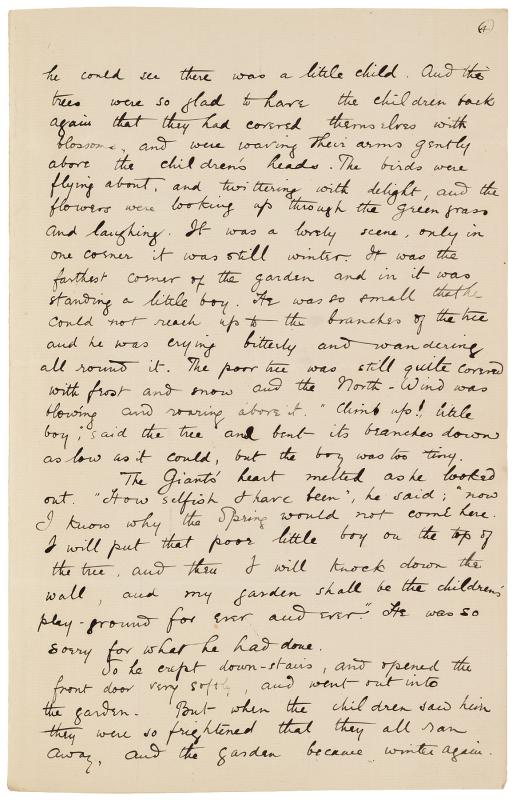 4
he could see there was a little child. And the
trees were so glad to have the children back
again that they had covered themselves with
blossoms, and were waving their arms gently
above the children's heads. The birds were
flying about, and twittering with delight, and the
flowers were looking up through the green grass
and laughing. It was a lovely scene, only in
one corner it was still winter. It was the
farthest corner of the garden and in it was
standing a little boy. He was so small that he
could not reach up to the branches of the tree
and he was crying bitterly and wandering
all round it. The poor tree was still quite covered
with frost and snow and the North-Wind was
blowing and roaring above it. "Climb up! little
boy", said the tree and bent its branches down
as low as it could, but the boy was too tiny.
The Giant's heart melted as he looked
out. "How selfish I have been", he said; "now
I know why the Spring would not come here.
I will put that poor little boy on the top of
the tree, and then I will knock down the
wall, and my garden shall be the children's
play-ground for ever and ever." He was so
sorry for what he had done.
So he crept down-stairs, and opened the
front door very softly, and went out into
the garden. But when the children saw him
they were so frightened that they all ran
away, and the garden became winter again.